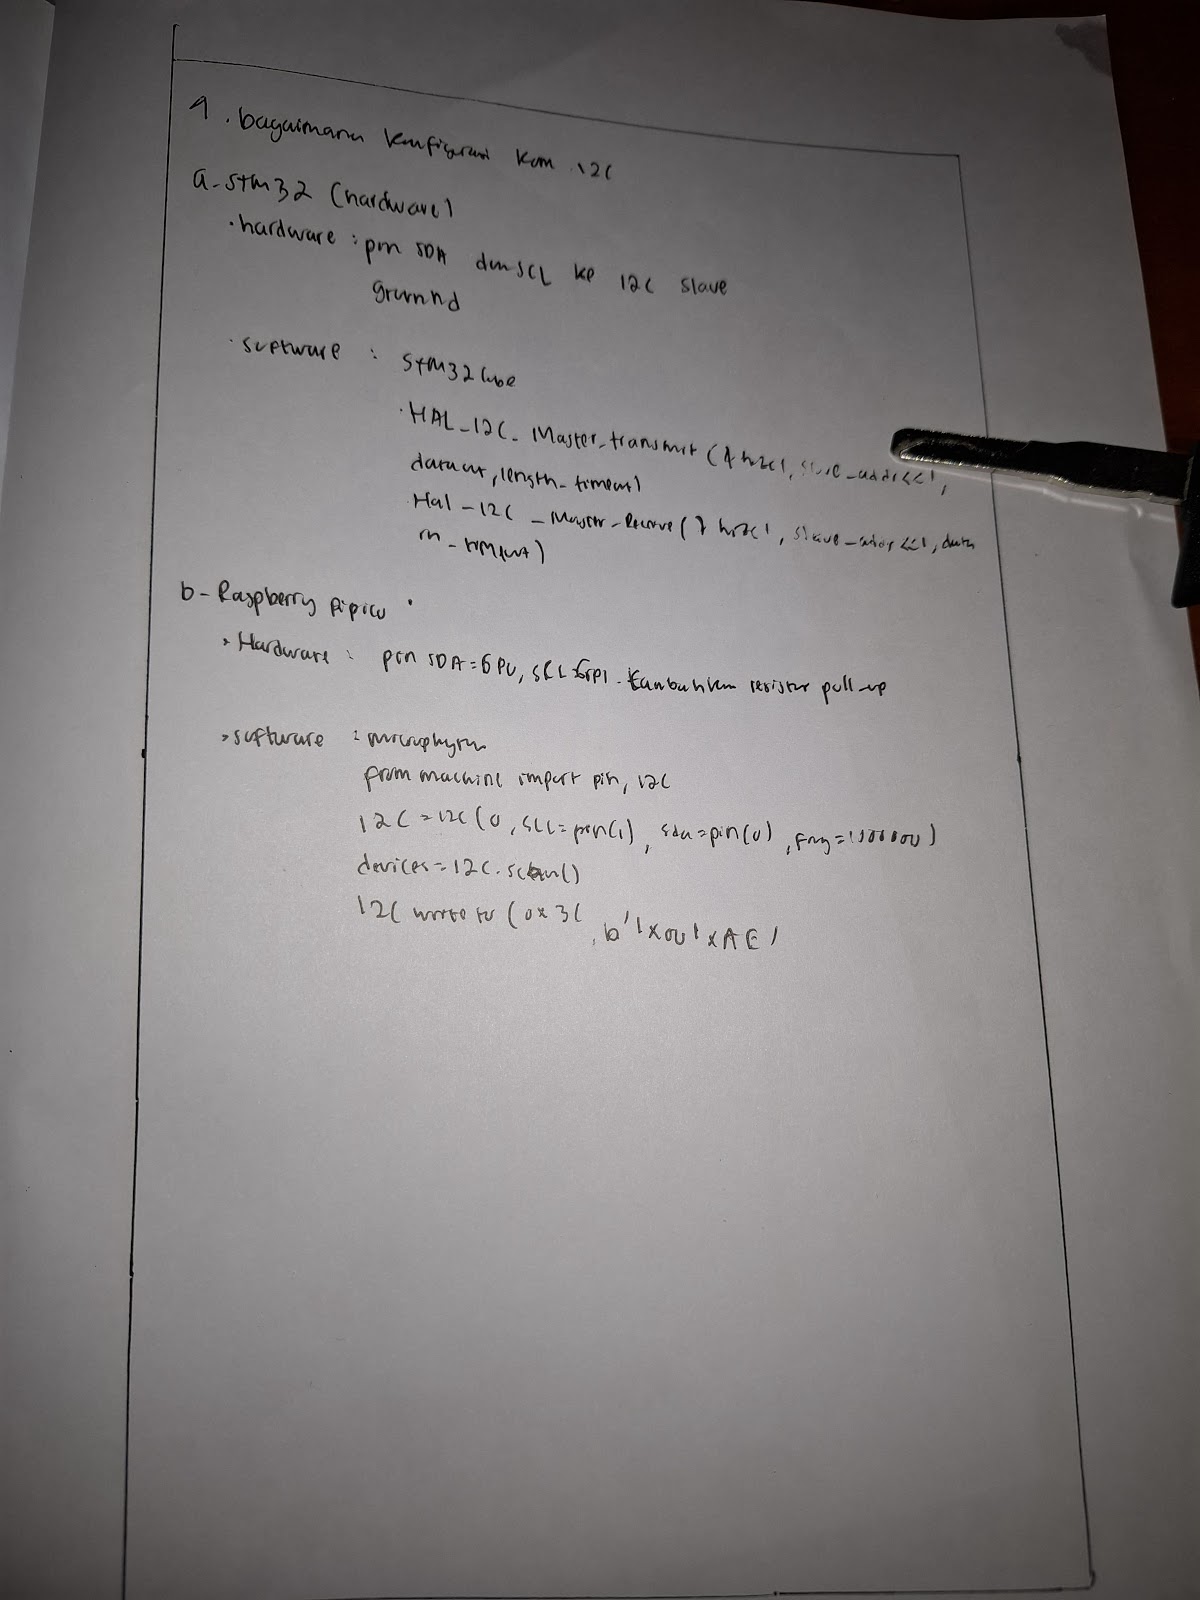 1. bagaimana konfigurasi kom I2C
a. STM32 (hardware)
· hardware : pin SDA dan SCL ke I2C slave
ground
· software : STM32 Cube
· HAL_I2C_Master_transmit (&hi2c1, slave_addr<<1,
data out, length_timeout)
Hal_I2C_Master_Receive (&hi2c1, slave_addr<<1, data
in_timeout)
b - Raspberry pi pico
> Hardware : pin SDA=GP0, SCL=GP1. tambahkan resistor pull-up
> software :
from machine import pin, I2C
I2C = I2C (0, SCL=pin(1), sda=pin(0), freq=100000)
devices=I2C.scan()
I2C write to (0x3C, b'\x00\xAE'